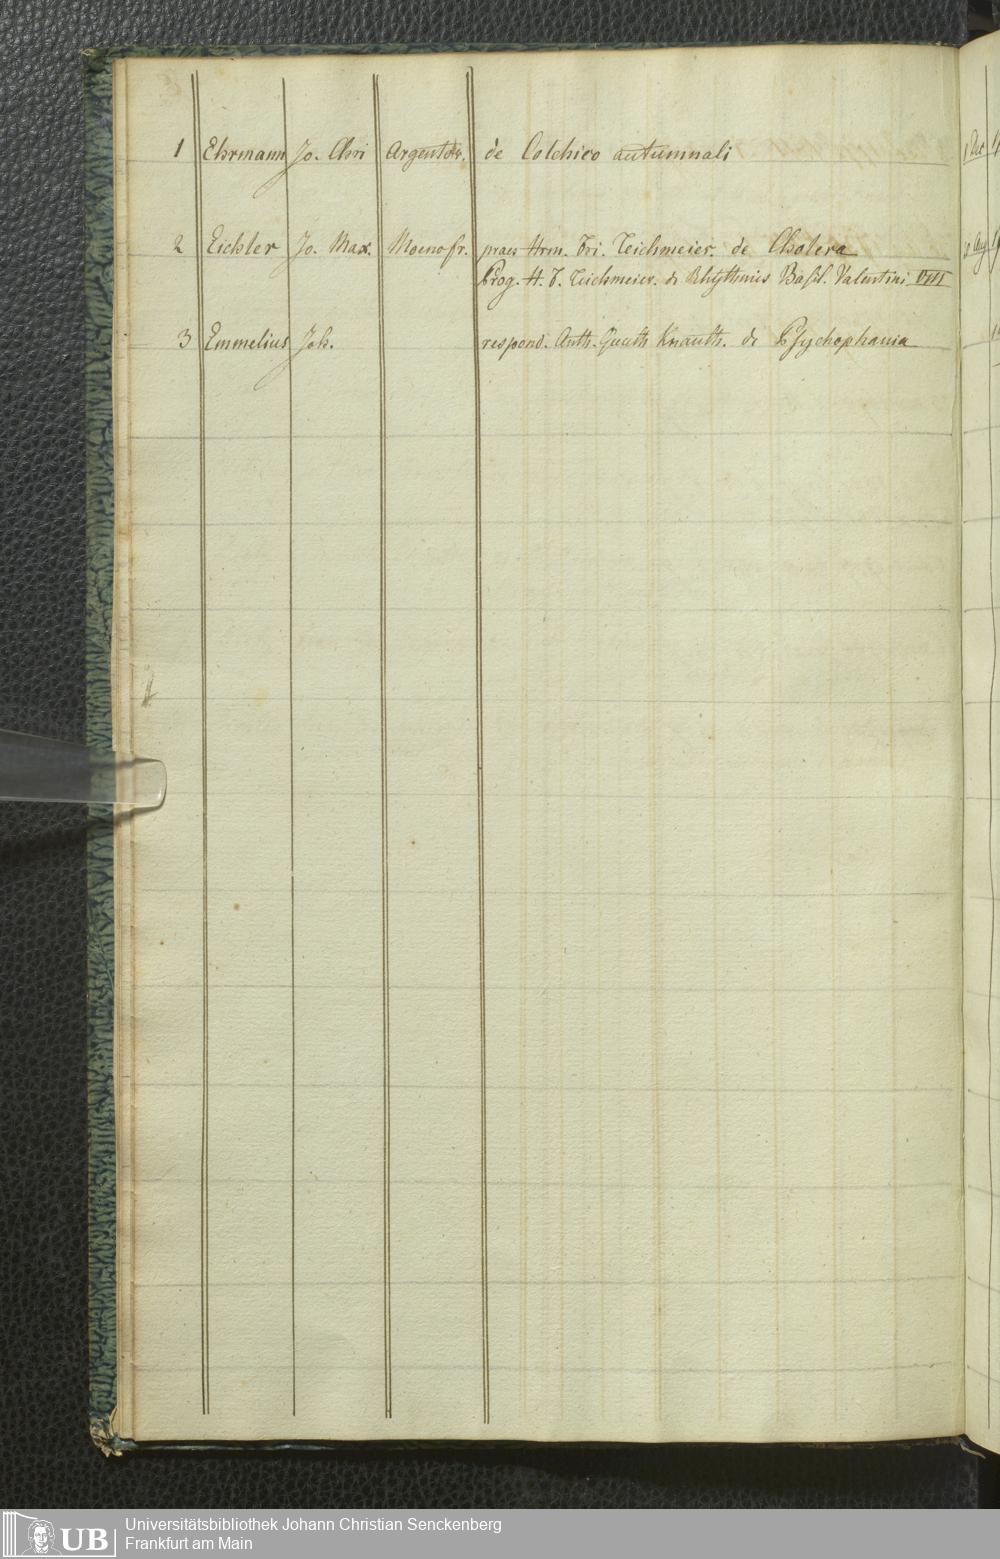 1 Ehrmann Jo. Chri Argentor. de Colchico autumnali
2 Eichler Jo. Max. Moenofr. praes Hrm. Fri. Teichmeier. de Cholera
Prog. H. F. Teichmeier. de Rhythmis Basil. Valentini VIII
3 Emmelius Joh. respond. Anth. Knauth. de Psychophania
UB
Universitätsbibliothek Johann Christian Senckenberg
Frankfurt am Main